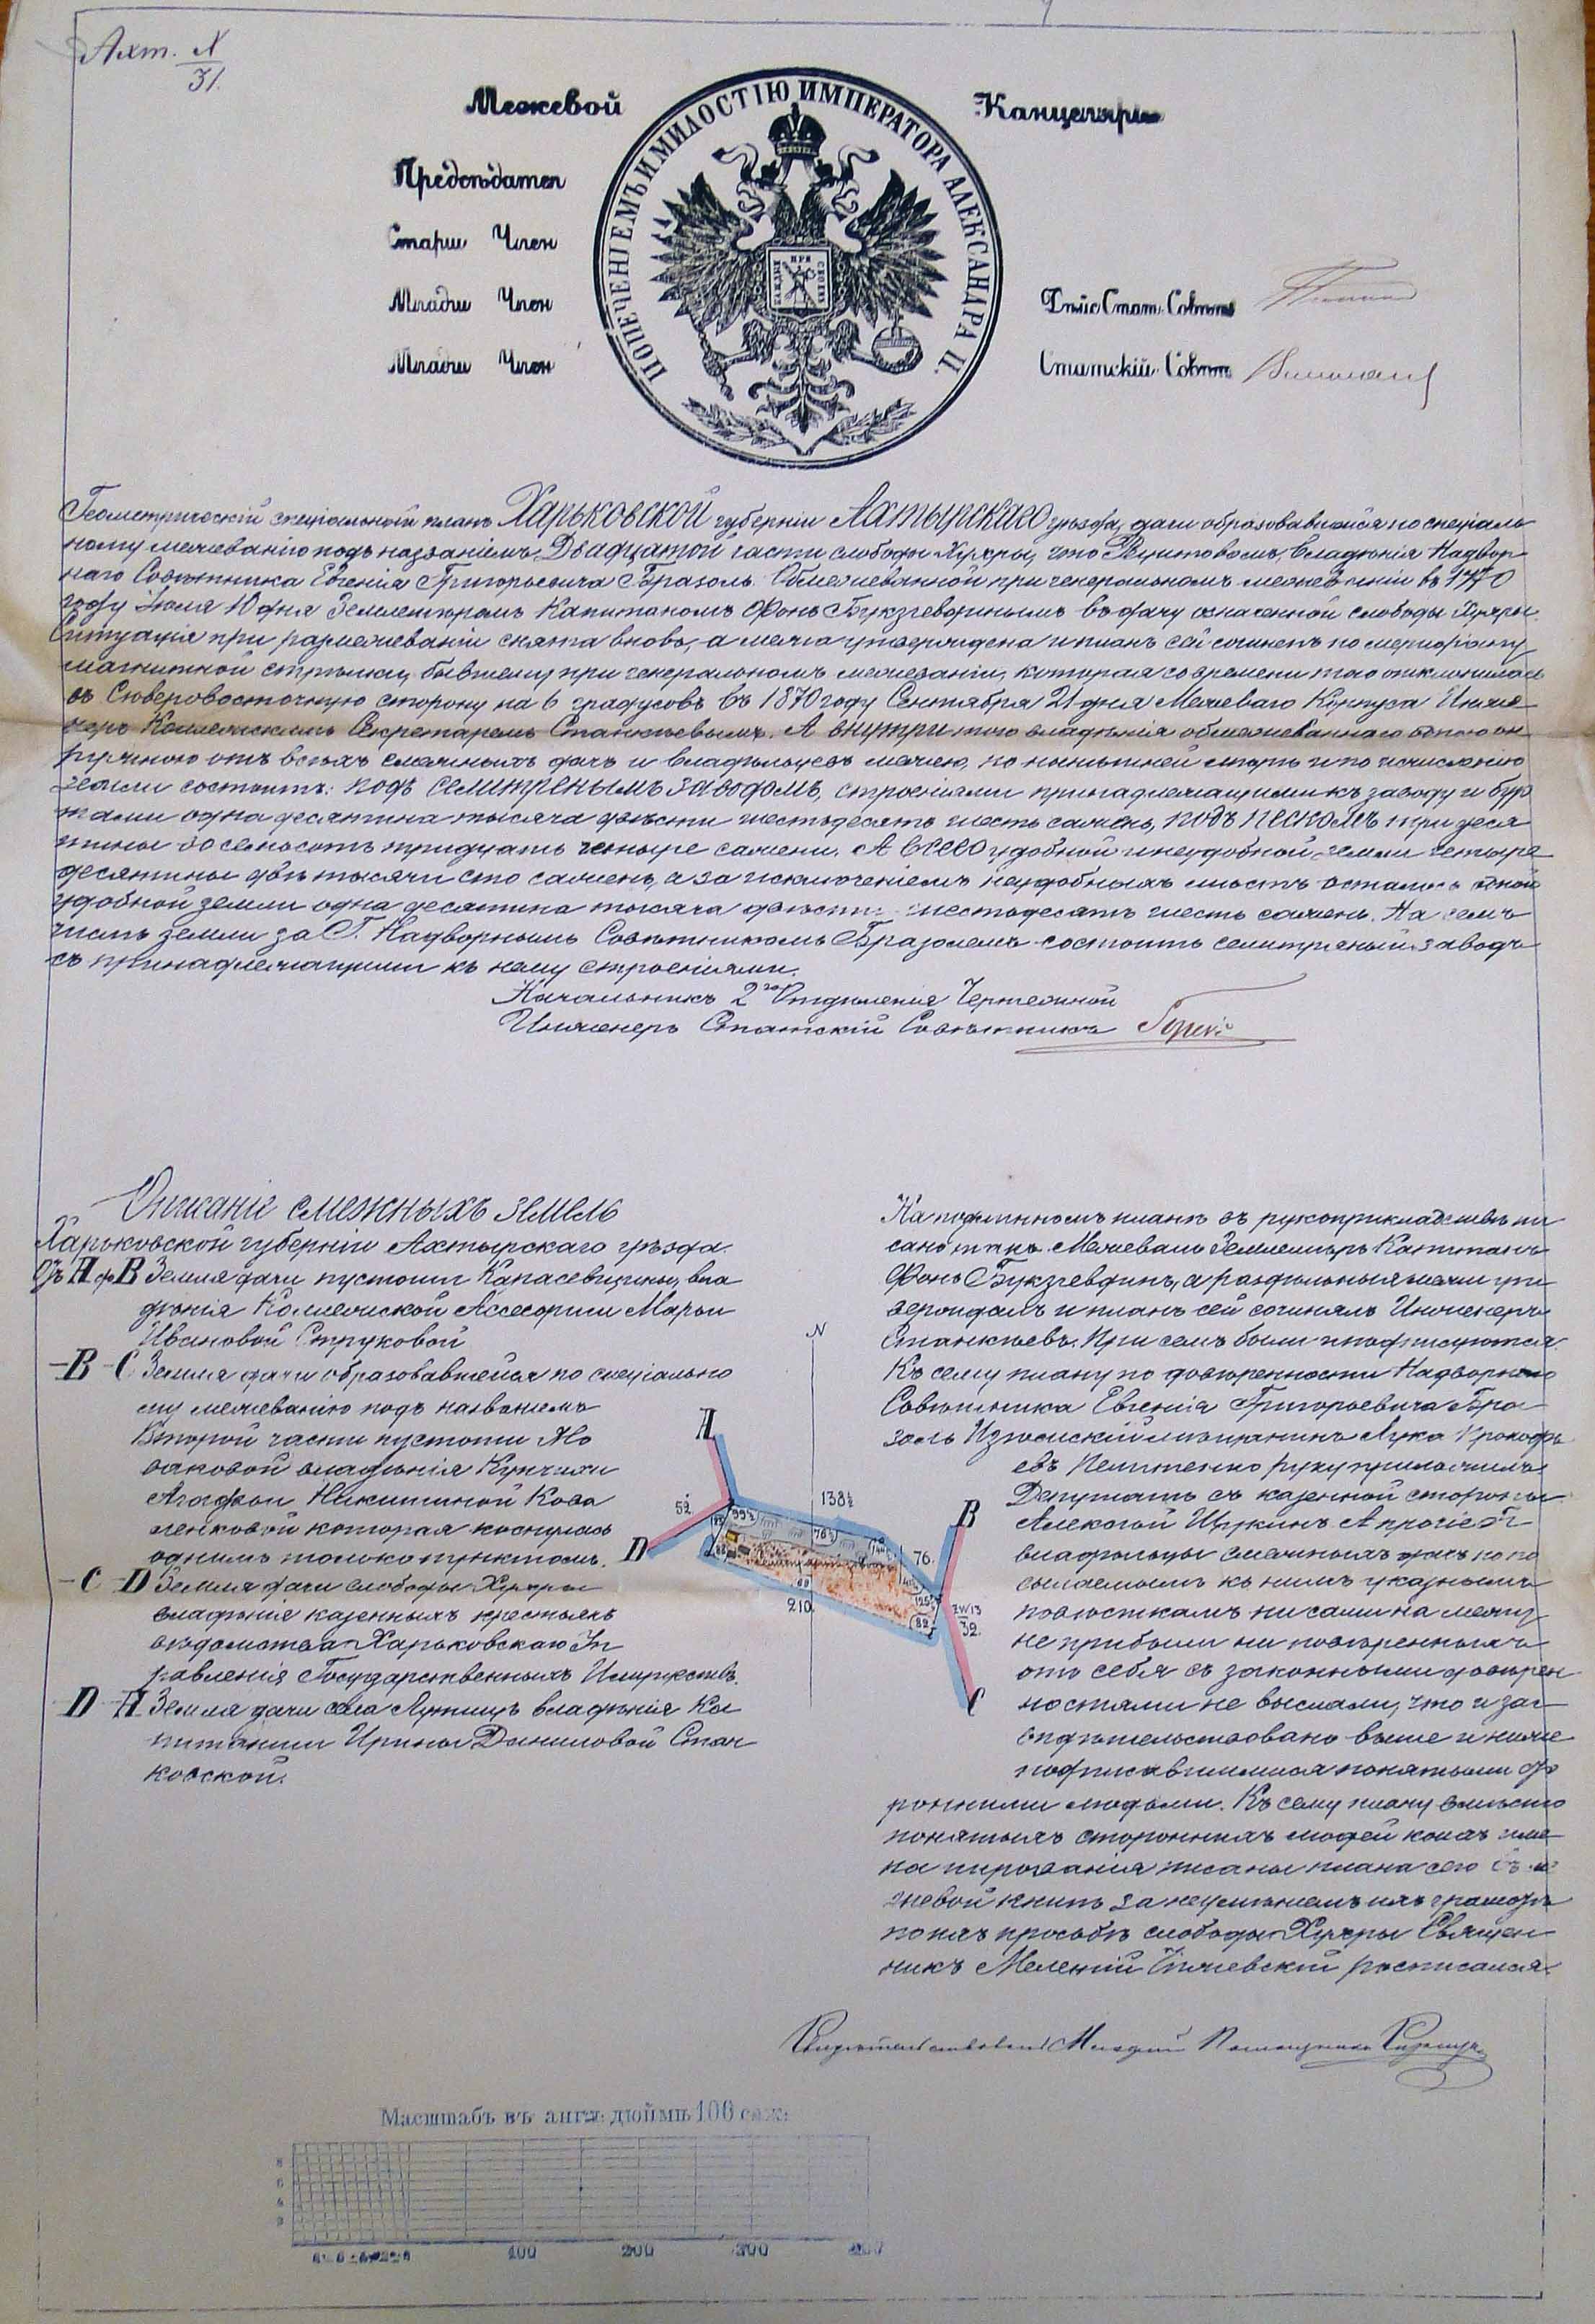 Ахт. N
31.
Межевой Канцеляріи
ПОПЕЧЕНІЕМЪ И МИЛОСТІЮ ИМПЕРАТОРА АЛЕКСАНДРА II.
Предсѣдател
Старш Член
Младш Член Дѣйс Стат. Совѣт
Младш Член Статскій Совѣт
Геометрическій спеціальный планъ Харьковской губерніи Ахтырскаго уѣзда, дачи образовавшейся по спеціаль
ному межеванію подъ названіемъ Двадцатой части слободы Хухры, что владѣнія Надвор
наго Совѣтника Евгенія Григорьевича Бразоль. Обмежеванной при генеральномъ межеваніи въ 1770
году Іюля 10 дня Землемѣромъ Капитаномъ Фонъ Букзгевденымъ въ дачу означенной слободы Хухры.
Ситуація при размежеваніи снята вновь, а межа утверждена и планъ сей сочиненъ по меридіану
магнитной стрѣлки, бывшему при генеральномъ межеваніи, которая со времени того отклонилась
въ Сѣверовосточную сторону на 6 градусовъ въ 1870 году Сентября 21 дня Межеваго Корпуса Инже
неръ Коллежскимъ Секретаремъ Станкѣевымъ. А внутри того владѣнія обмежеваннаго
отъ всѣхъ смежныхъ дачъ и владѣльцевъ межею, по нынѣшней мѣрѣ и по исчисленію
земли состоитъ: подъ селитренымъ заводомъ, строеніями принадлежащими къ заводу и бур
тами одна десятина тысяча двѣсти шестьдесятъ шесть сажень, подъ пескомъ три деся
тины восемьсотъ тридцать четыре сажени. А всего удобной и неудобной земли четыре
десятины двѣ тысячи сто сажень, а за исключеніемъ неудобныхъ мѣстъ осталось одной
удобной земли одна десятина тысяча двѣсти шестьдесятъ шесть сажень. На семъ
числѣ земли за Г. Надворнымъ Совѣтникомъ Бразолемъ состоитъ селитреный заводъ
съ принадлежащими къ нему строеніями.
Начальникъ 2го Отдѣленія Чертежной
Инженеръ Статскій Совѣтникъ
Описаніе смежныхъ земель
Харьковской губерніи Ахтырскаго уѣзда.
Отъ А до В Земля дачи пустоши Капасевщины, вла
дѣнія Коллежской Ассесорши Марьи
Ивановой Струковой
В С Земля дачи образовавшейся по спеціально
му межеванію подъ названіемъ
Второй части пустоши
владѣнія Купчихи
Агафьи Никитиной Кова
ленковой которая коснулась
однимъ только пунктомъ.
С D Земля дачи слободы Хухры
владѣнія казенныхъ крестьянъ
вѣдомства Харьковскаго Уп
равленія Государственныхъ Имуществъ.
D А Земля дачи села Лутищъ владѣнія Ка
питанши Ирины Даниловой Стан
ковской.
N
А
B
C
D
52
138½
99½
76½
76.
125½
32.
82
89
210.
На подлинномъ планѣ въ рукоприкладствѣ пи
сано такъ. Межевалъ Землемѣръ Капитанъ
Фонъ Букзгевденъ, а раздѣльныя межи ут
верждалъ и планъ сей сочинялъ Инженеръ
Станкѣевъ. При семъ были и подписуются.
Къ сему плану по довѣренности Надворнаго
Совѣтника Евгенія Григорьевича Бра
золь Изюмскій мѣщанинъ Лука Прокофь
евъ Пелипенко руку приложилъ.
Депутатъ съ казенной стороны
Алексѣй Щукинъ. А прочіе Г.г.
владѣльцы смежныхъ дачъ по по
сылаемымъ къ нимъ указнымъ
повѣсткамъ ни сами на межу
не прибыли ни повѣренныхъ
отъ себя съ законными довѣрен
ностями не выслали, что и зас
видѣтельствовано выше и ниже
подписавшимися понятыми сто
ронними людьми. Къ сему плану вмѣсто
понятыхъ стороннихъ людей коихъ име
на и прозванія писаны плана сего въ ме
жевой книгѣ за неумѣніемъ ихъ грамотѣ
по ихъ просьбѣ слободы Хухры Священ
никъ Мелентій росписался.
Свидѣтельствовалъ Младшій Помощникъ
Масштабъ въ англ. дюймѣ 100 саж:
8
6
4
2
100 200 300 400